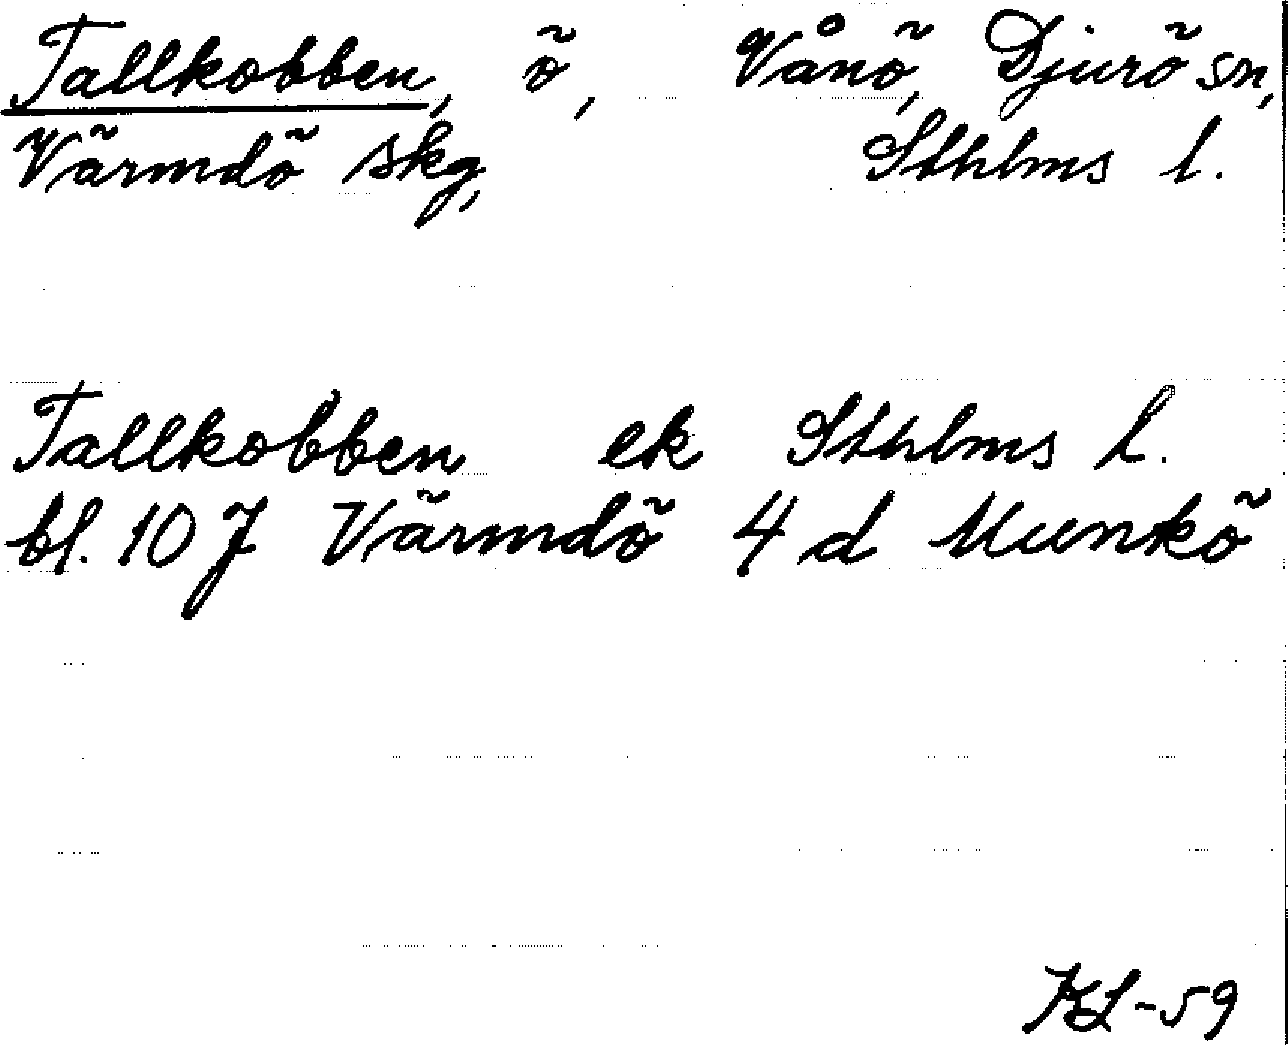 Tallkobben, ö, Vånö, Djurö sn,
Värmdö skg, Sthlms l.
Tallkobben ek Sthlms l.
bl. 10 J Värmdö 4 d Munkö
KL-59